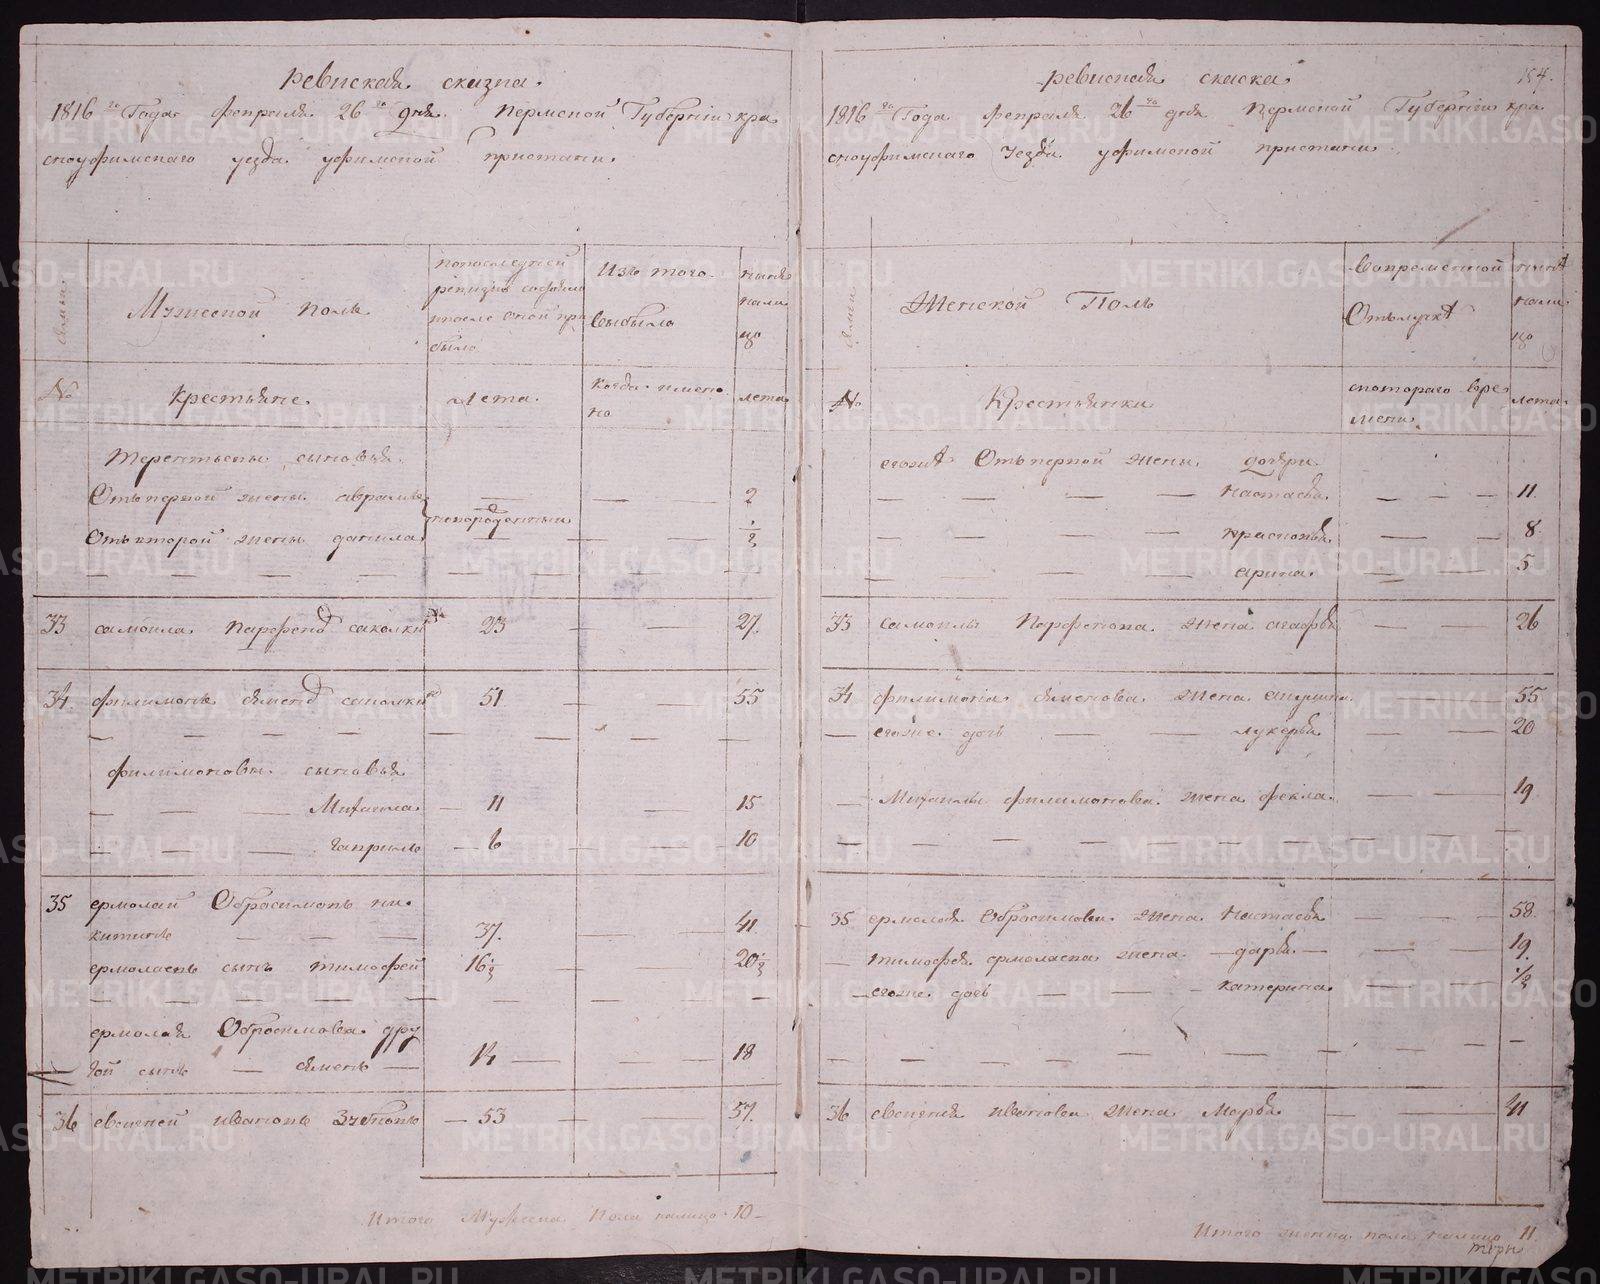 ревиская сказка.
1816 го Года февраля 26 го дня. Пермской Губернии кра
сноуфимскаго уезда уфимской пристани.
Мужеской полъ
попоследней
ревизии состояло
ипосле оной при
было
Изъ того
выбыло
ныне
нали
цо
№
Крестьяне.
Лета.
когда имено
но
лета
Терентьевы сыновья.
Отъ первой жены аврамъ 2
новорожденныи
Отъ второй жены данила 1/2
33 самоила Парфенов саколкин 23 27.
34. филимонъ семенов саколкин 51 55
филимоновы сыновья
Михаила 11 15
Гаврилъ 6 10
35 ермолай Обросимовъ ни
китинъ 37. 41
ермолаевъ сынъ тимофей 16 1/2 20 1/2
ермолая Обросимова дру
гой сынъ семенъ 14 18
36 евсигней ивановъ Зубковъ 53 57.
Итого Мужеска Пола налицо 10
ревиская скаска. 184.
1816 го Года февраля 26 го дня Пермской Губернии кра
сноуфимскаго Уезда уфимской пристани
Женской Полъ
вовременной
Отълучке
ныне
нали
цо
№
Крестьянки
скотораго вре
мени
лета.
егоже Отъ первой жены дочери
настасья 11.
8
арина. 5
33 самоилы Парфенова жена агафья 26
34 филимона семенова. жена акулина 55
егоже дочь лукерья 20
Михаилы филимонова жена фекла. 19
35 ермолая Обросимова жена Настасья 58
тимофея ермолаева жена дарья 19.
егоже дочь катерина 1/2
36 евсигнея иванова жена Марья 41
Итого женска пола налицо 11
METRIKI.GASO-URAL.RU